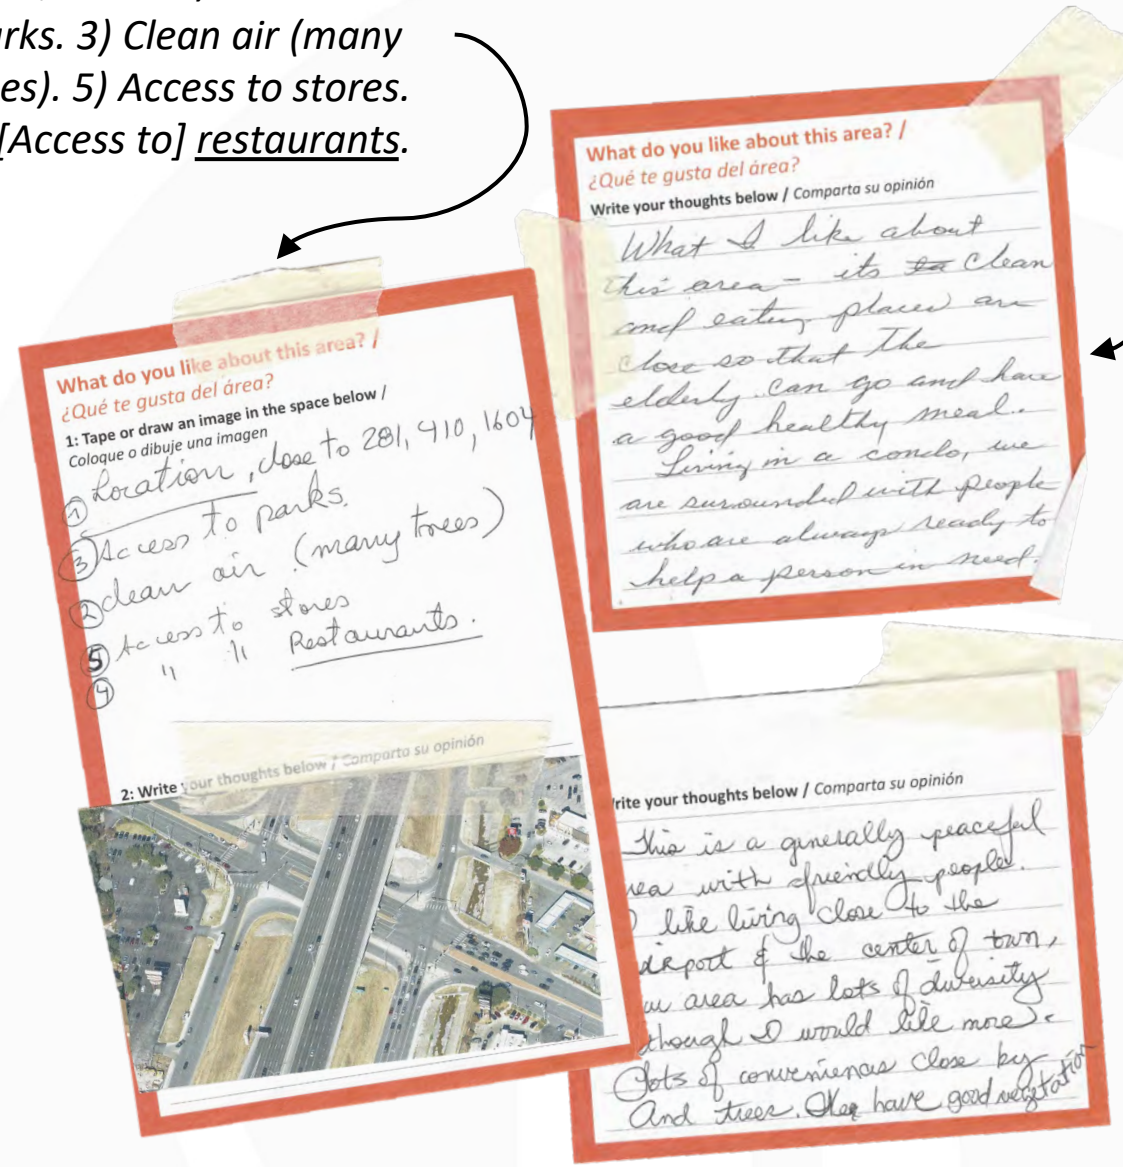 arks. 3) Clean air (many
es). 5) Access to stores.
[Access to] restaurants.
What do you like about this area? /
¿Qué te gusta del área?
1: Tape or draw an image in the space below /
Coloque o dibuje una imagen
① Location, close to 281, 410, 1604
③ Access to parks.
② clean air (many trees)
⑤ Access to stores
④ " " Restaurants.
2: Write your thoughts below / Comparta su opinión
What do you like about this area? /
¿Qué te gusta del área?
Write your thoughts below / Comparta su opinión
What I like about
this area - its clean
and eating places are
close so that the
elderly can go and have
a good healthy meal.
Living in a condo, we
are surrounded with people
who are always ready to
help a person in need.
rite your thoughts below / Comparta su opinión
This is a generally peaceful
rea with friendly people.
I like living close to the
airport & the center of town,
area has lots of diversity
though I would like more.
Lots of conveniences close by
And trees. have good vegetation